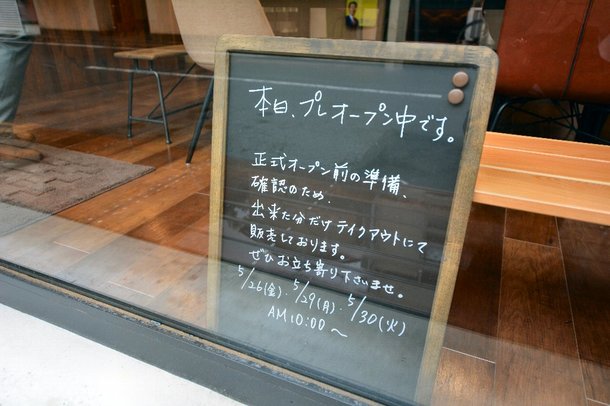 本日、プレオープン中です。
正式オープン前の準備、
確認のため、
出来た分だけテイクアウトにて
販売しております。
ぜひお立ち寄り下さいませ。
5/26(金)・5/29(月)・5/30(火)
AM10:00〜